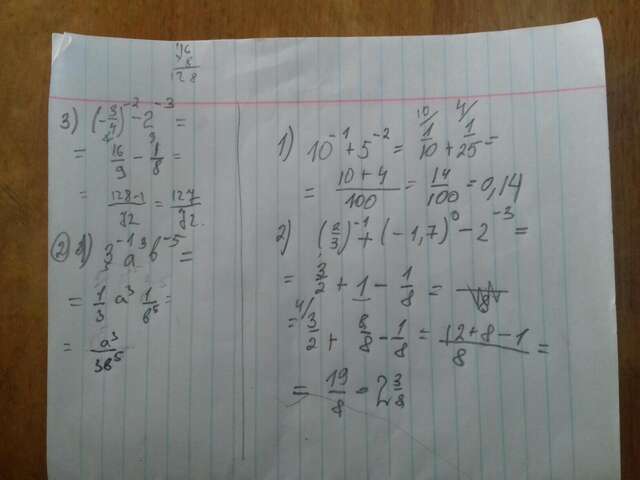 16
8
128
3) (-3/4)^-2 - 2^-3 =
= 16/9 - 1/8 =
= 128-1/72 = 127/72.
② 1) 3^-1 a^3 b^-5 =
= 1/3 a^3 1/b^5 =
= a^3/3b^5
1) 10^-1 + 5^-2 = 10/ 1/10 + 4/ 1/25 =
= 10+4/100 = 14/100 = 0,14
2) (2/3)^-1 + (-1,7)^0 - 2^-3 =
= 3/2 + 1 - 1/8 =
= 4/ 3/2 + 8/8 - 1/8 = 12+8-1/8 =
= 19/8 = 2 3/8